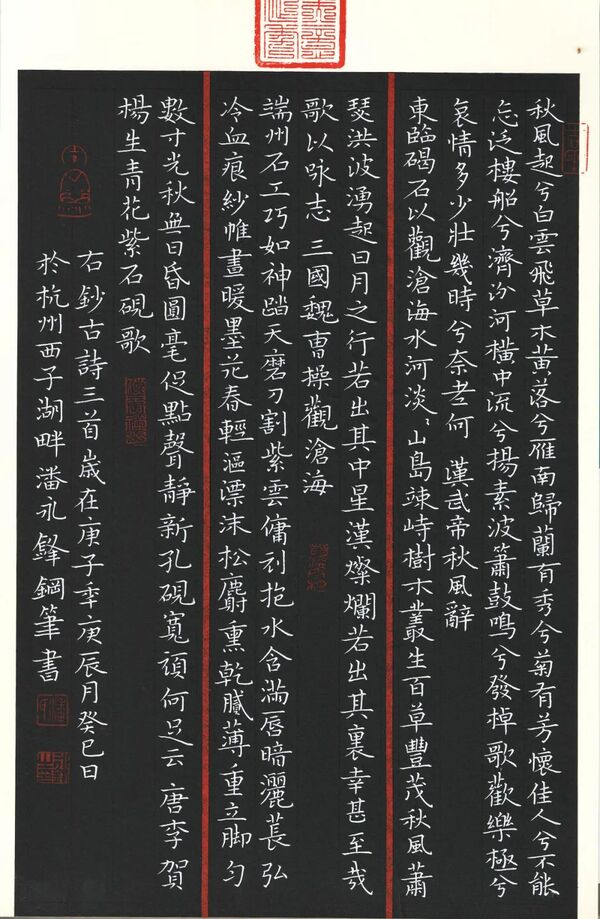 秋風起兮白雲飛草木黃落兮雁南歸蘭有秀兮菊有芳懷佳人兮不能
忘泛樓船兮濟汾河橫中流兮揚素波簫鼓鳴兮發棹歌歡樂極兮
哀情多少壯幾時兮奈老何 漢武帝秋風辭
東臨碣石以觀滄海水河淡〻山島竦峙樹木叢生百草豐茂秋風蕭
瑟洪波湧起日月之行若出其中星漢燦爛若出其裏幸甚至哉
歌以咏志 三國魏曹操觀滄海
端州石工巧如神踏天磨刀割紫雲傭刓抱水含滿唇暗灑萇弘
冷血痕紗帷晝暖墨花春輕漚漂沫松麝熏乾膩薄重立脚勻
數寸光秋無日昏圓毫促點聲靜新孔硯寬頑何足云 唐李賀
楊生青花紫石硯歌
右鈔古詩三首歲在庚子年庚辰月癸巳日
於杭州西子湖畔潘永鋒鋼筆書